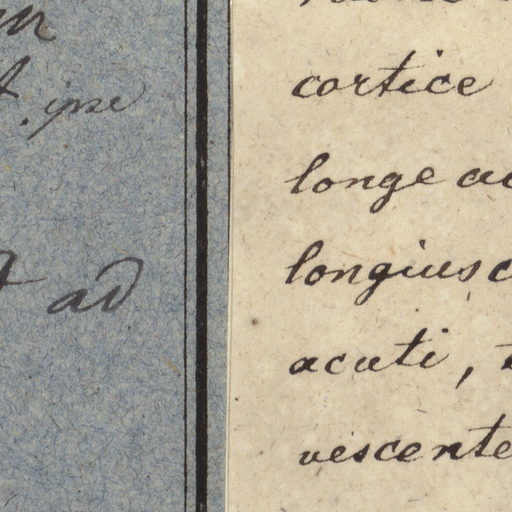 ipse
ad
cortice
longe ac
longiusc
acuti,
vescente